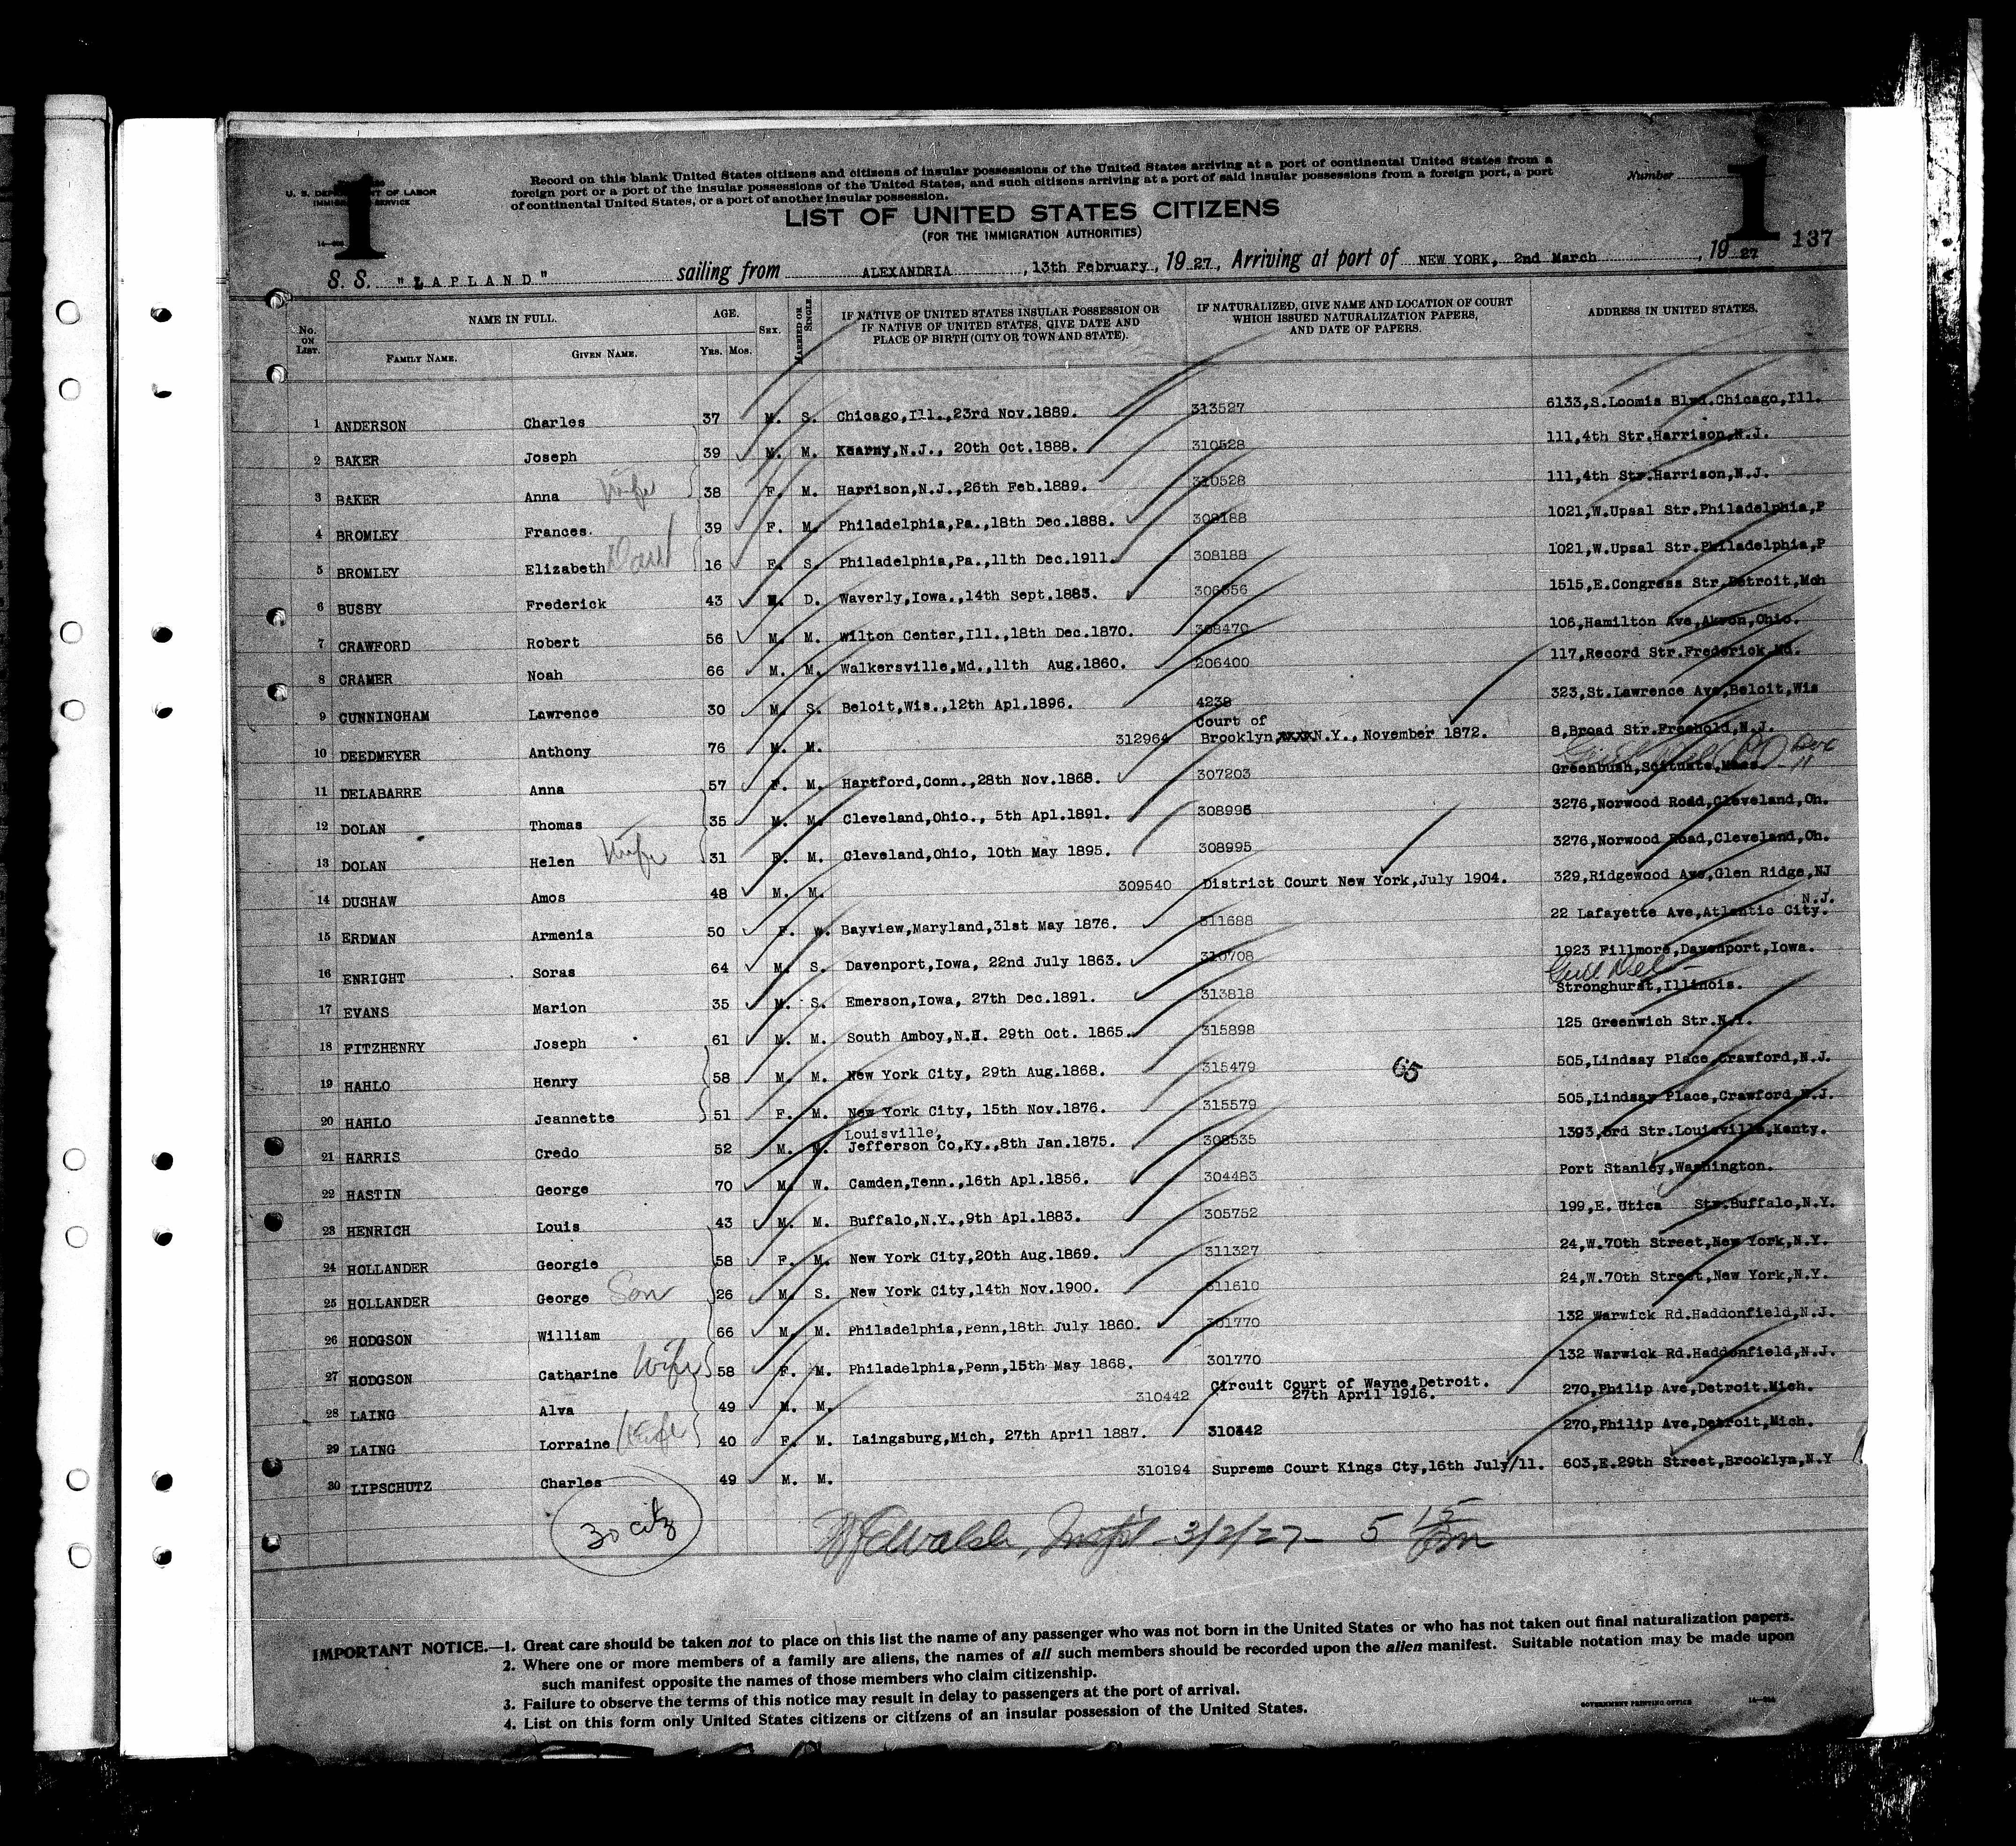 1
1
U. S. DEPARTMENT OF LABOR
IMMIGRATION SERVICE
Record on this blank United States citizens and citizens of insular possessions of the United States arriving at a port of continental United States from a
foreign port or a port of the insular possessions of the United States, and such citizens arriving at a port of said insular possessions from a foreign port, a port
of continental United States, or a port of another insular possession.
Number
LIST OF UNITED STATES CITIZENS
(FOR THE IMMIGRATION AUTHORITIES)
137
S. S. "LAPLAND" sailing from ALEXANDRIA, 13th February, 1927, Arriving at port of NEW YORK, 2nd March, 1927
No. ON LIST. NAME IN FULL. FAMILY NAME. GIVEN NAME. AGE. YRS. MOS. SEX. MARRIED OR SINGLE. IF NATIVE OF UNITED STATES INSULAR POSSESSION OR IF NATIVE OF UNITED STATES, GIVE DATE AND PLACE OF BIRTH (CITY OR TOWN AND STATE). IF NATURALIZED, GIVE NAME AND LOCATION OF COURT WHICH ISSUED NATURALIZATION PAPERS, AND DATE OF PAPERS. ADDRESS IN UNITED STATES.
1 ANDERSON Charles 37 M. S. Chicago,Ill.,23rd Nov.1889. 313527 6133,S.Loomis Blvd.Chicago,Ill.
2 BAKER Joseph 39 M. M. Kearny,N.J., 20th Oct.1888. 310528 111,4th Str.Harrison,N.J.
3 BAKER Anna Wife 38 F. M. Harrison,N.J.,26th Feb.1889. 310528 111,4th Str.Harrison,N.J.
4 BROMLEY Frances. 39 F. M. Philadelphia,Pa.,18th Dec.1888. 308188 1021,W.Upsal Str.Philadelphia,P
5 BROMLEY Elizabeth Daut 16 F. S. Philadelphia,Pa.,11th Dec.1911. 308188 1021,W.Upsal Str.Philadelphia,P
6 BUSBY Frederick 43 M. D. Waverly,Iowa.,14th Sept.1883. 306656 1515,E.Congress Str.Detroit,Mch
7 CRAWFORD Robert 56 M. M. Wilton Center,Ill.,18th Dec.1870. 308470 106,Hamilton Ave,Akron,Ohio.
8 CRAMER Noah 66 M. M. Walkersville,Md.,11th Aug.1860. 206400 117,Record Str.Frederick,Md.
9 CUNNINGHAM Lawrence 30 M. S. Beloit,Wis.,12th Apl.1896. 4238 323,St.Lawrence Ave,Beloit,Wis
10 DEEDMEYER Anthony 76 M. M. 312964 Court of Brooklyn,xxxxN.Y., November 1872. 8,Broad Str.Freehold,N.J.
11 DELABARRE Anna 57 F. M. Hartford,Conn.,28th Nov.1868. 307203 Greenbush,Scituate,Mass.
12 DOLAN Thomas 35 M. M. Cleveland,Ohio., 5th Apl.1891. 308995 3276,Norwood Road,Cleveland,Oh.
13 DOLAN Helen Wife 31 F. M. Cleveland,Ohio, 10th May 1895. 308995 3276,Norwood Road,Cleveland,Oh.
14 DUSHAW Amos 48 M. M. 309540 District Court New York,July 1904. 329,Ridgewood Ave,Glen Ridge,NJ
15 ERDMAN Armenia 50 F. W. Bayview,Maryland,31st May 1876. 311688 22 Lafayette Ave,Atlantic City. N.J.
16 ENRIGHT Soras 64 M. S. Davenport,Iowa, 22nd July 1863. 310708 1923 Fillmore,Davenport,Iowa.
17 EVANS Marion 35 M. S. Emerson,Iowa, 27th Dec.1891. 313818 Stronghurst,Illinois.
18 FITZHENRY Joseph 61 M. M. South Amboy,N.H. 29th Oct. 1865. 315898 125 Greenwich Str.N.Y.
19 HAHLO Henry 58 M. M. New York City, 29th Aug.1868. 315479 505,Lindsay Place,Crawford,N.J.
65
20 HAHLO Jeannette 51 F. M. New York City, 15th Nov.1876. 315579 505,Lindsay Place,Crawford,N.J.
21 HARRIS Credo 52 M. M. Louisville, Jefferson Co,Ky.,8th Jan.1875. 308535 1393,3rd Str.Louisville,Kenty.
22 HASTIN George 70 M. W. Camden,Tenn.,16th Apl.1856. 304483 Port Stanley,Washington.
23 HENRICH Louis 43 M. M. Buffalo,N.Y.,9th Apl.1883. 305752 199,E.Utica Str.Buffalo,N.Y.
24 HOLLANDER Georgie 58 F. M. New York City,20th Aug.1869. 311327 24,W.70th Street,New York,N.Y.
25 HOLLANDER George Son 26 M. S. New York City,14th Nov.1900. 311610 24,W.70th Street,New York,N.Y.
26 HODGSON William 66 M. M. Philadelphia,Penn,18th July 1860. 301770 132 Warwick Rd.Haddonfield,N.J.
27 HODGSON Catharine Wife 58 F. M. Philadelphia,Penn,15th May 1868. 301770 132 Warwick Rd.Haddonfield,N.J.
28 LAING Alva 49 M. M. 310442 Circuit Court of Wayne,Detroit. 27th April 1916. 270,Philip Ave,Detroit.Mich.
29 LAING Lorraine Wife 40 F. M. Laingsburg,Mich, 27th April 1887. 310442 270,Philip Ave,Detroit,Mich.
30 LIPSCHUTZ Charles 49 M. M. 310194 Supreme Court Kings Cty,16th July/11. 603,E.29th Street,Brooklyn,N.Y
30 citz
Walsh, Insp't - 3/2/27 - 5 15 Pm
IMPORTANT NOTICE.—1. Great care should be taken not to place on this list the name of any passenger who was not born in the United States or who has not taken out final naturalization papers.
2. Where one or more members of a family are aliens, the names of all such members should be recorded upon the alien manifest. Suitable notation may be made upon
such manifest opposite the names of those members who claim citizenship.
3. Failure to observe the terms of this notice may result in delay to passengers at the port of arrival.
4. List on this form only United States citizens or citizens of an insular possession of the United States.
GOVERNMENT PRINTING OFFICE